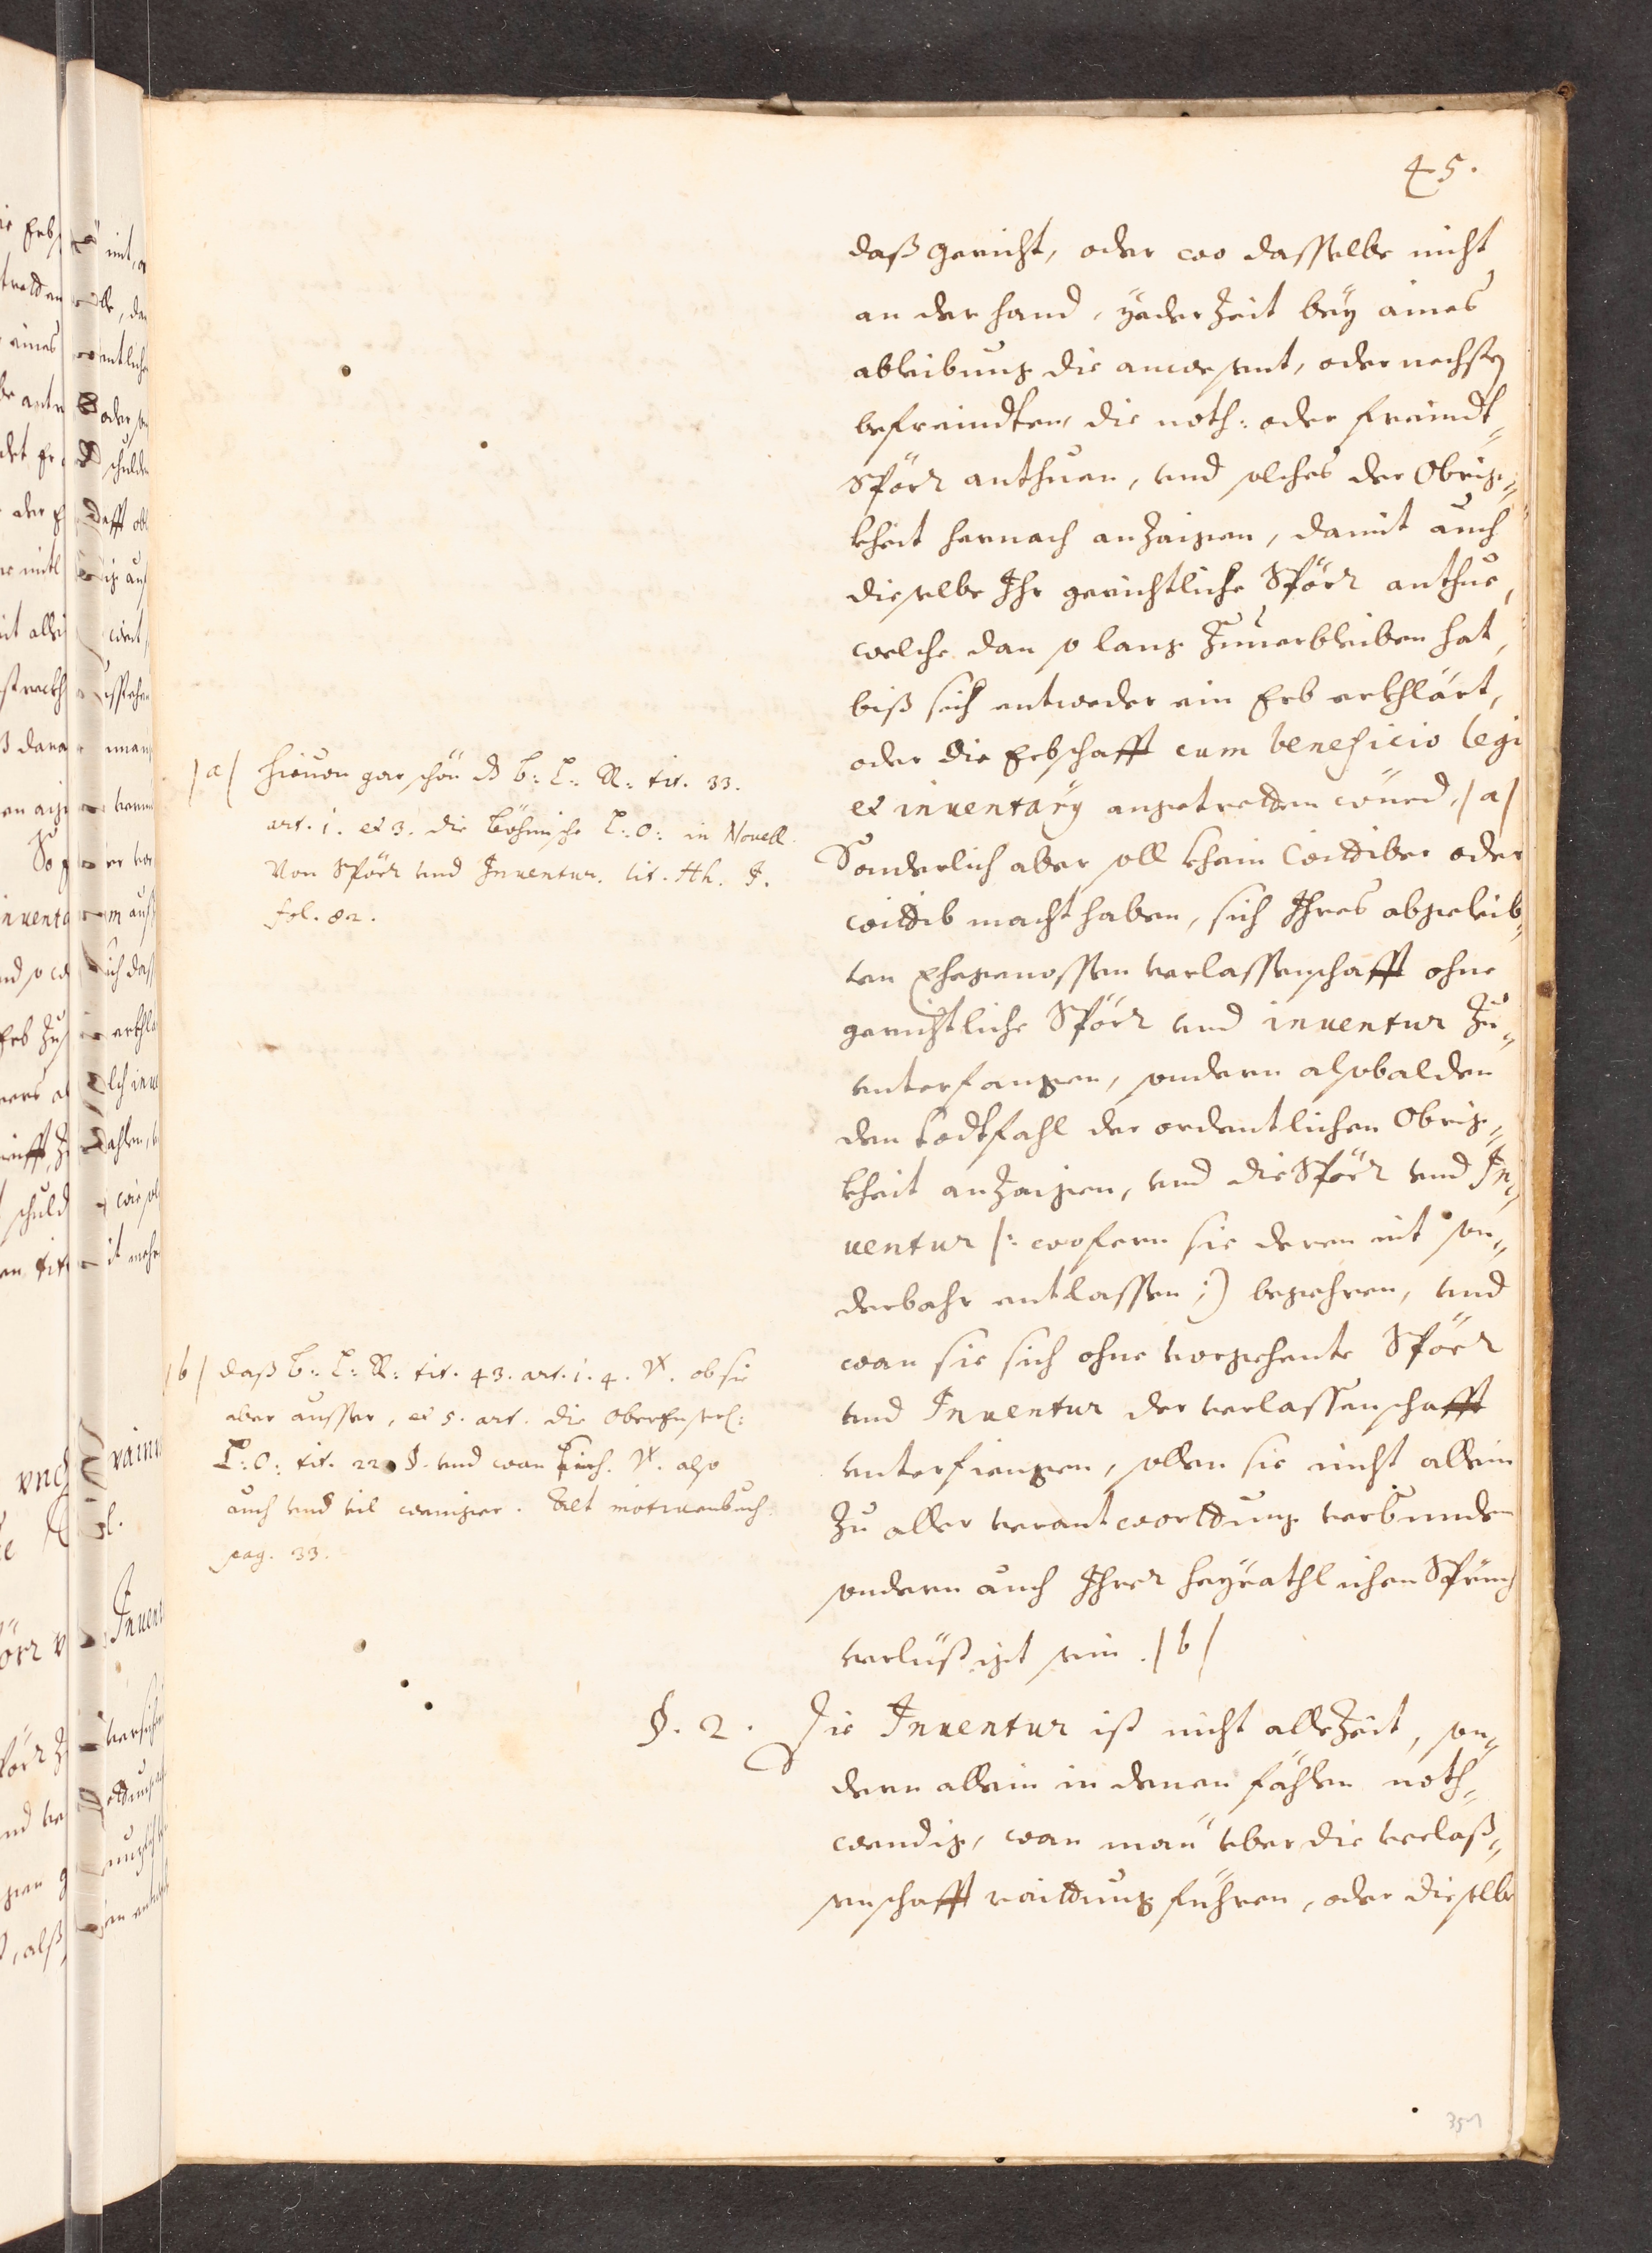 45.
daß gericht, oder wo dasselbe nicht
an der hand, yeder Zeit bey aines
ableibung die anwesent, oder nechsten
befreindten, die noth: oder freindt-
Spörr anthuen, vnd solches der Obrig-
kheit hernach anZaigen, damit auch
dieselbe Ihr gerichtliche Spörr anthue,
welche dan so lang Zuuerbleiben hat,
biß sich entweder ein Erb erkhlärt,
oder die Erbschafft cum beneficio legis
et inventarÿ angetretten würd, /a/
Sonderlich aber soll khein Wittiber oder
wittib macht haben, sich Ihres abgeleib-
ten Ehegenossen verlassenschafft ohne
gerichtliche Spörr vnd inventur Zu-
vnterfangen, sondern alsobalden
den todtfahl der ordentlichen Obrig-
kheit anZaigen, vnd die Spörr vnd In-
uentur /: wofern sie deren nit son-
derbahr entlassen :/ begehren, vnd
wan sie sich ohne vorgehente Spörr
vnd Inuentur der verlassenschafft
vnterfiengen, sollen sie nicht allein
Zu aller verantworttung verbunden
sondern auch Ihrer heyrathlichen Sprüch
verlüstigt sein. /b/
§. 2. Die Inuentur ist nicht alleZeit, son-
dern allein in denen fählen noth-
wendig, wan man vber die verlaß-
enschafft raittung führen, oder dieselbe
/a/ hieuon gar schön dz b: L: R: tit. 33.
art. 1. et 3. die böhmische L: O: in Novell.
Von Spörr vnd Inuentur. lit. Hh. I.
fol. 82.
/b/ daß b: L: R: tit. 43. art. 1. 4. V. ob sie
aber ausser, et 5. art. die
L: O: tit. 22 §. vnd wan V. also
auch vnd vil weniger. Alt motiuenbuch
pag. 33.